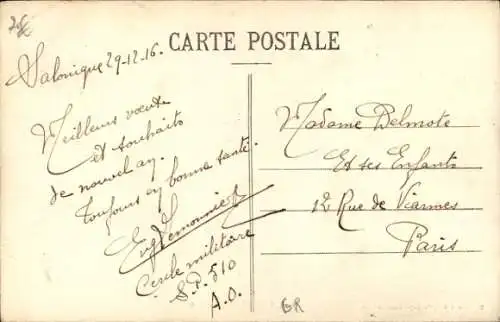 CARTE POSTALE
Salonique 29-12-16.
Meilleurs voeux
et souhaits
de nouvel an.
Toujours en bonne santé.
Eug Lemonnier
Cercle militaire
S.P. 510
A.O.
Madame Delmote
Et ses Enfants
12 Rue de Viarmes
Paris
GR